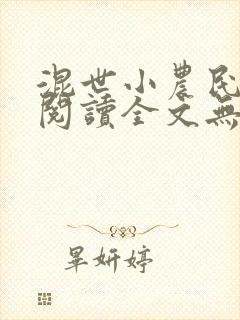 混世小農民
閱讀全文無
畢妍婷